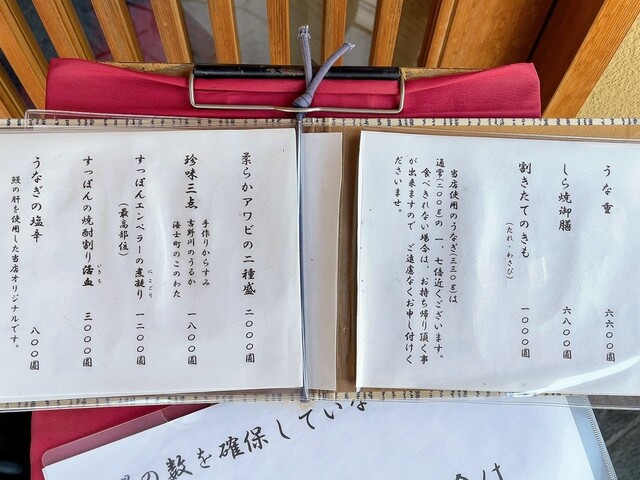 うな重 六六〇〇圓
しら焼御膳 六八〇〇圓
割きたてのきも 一〇〇〇圓
(たれ・わさび)
当店使用のうなぎ(三三〇g)は
通常(二〇〇g)の一、七倍近くございます。
食べきれない場合は、お持ち帰り頂く事
が出来ますので、ご遠慮なくお申し付けく
ださいませ。
柔らかアワビの二種盛 二〇〇〇圓
珍味三点 手作りからすみ
吉野川のうるか 一八〇〇圓
海士町のこのわた
すっぽんエンペラーの煮凝り 一二〇〇圓
にこごり
(最高部位)
すっぽんの焼酎割り活血 三〇〇〇圓
いきち
うなぎの塩辛 八〇〇圓
鰻の肝を使用した当店オリジナルです。
の数を確保していな